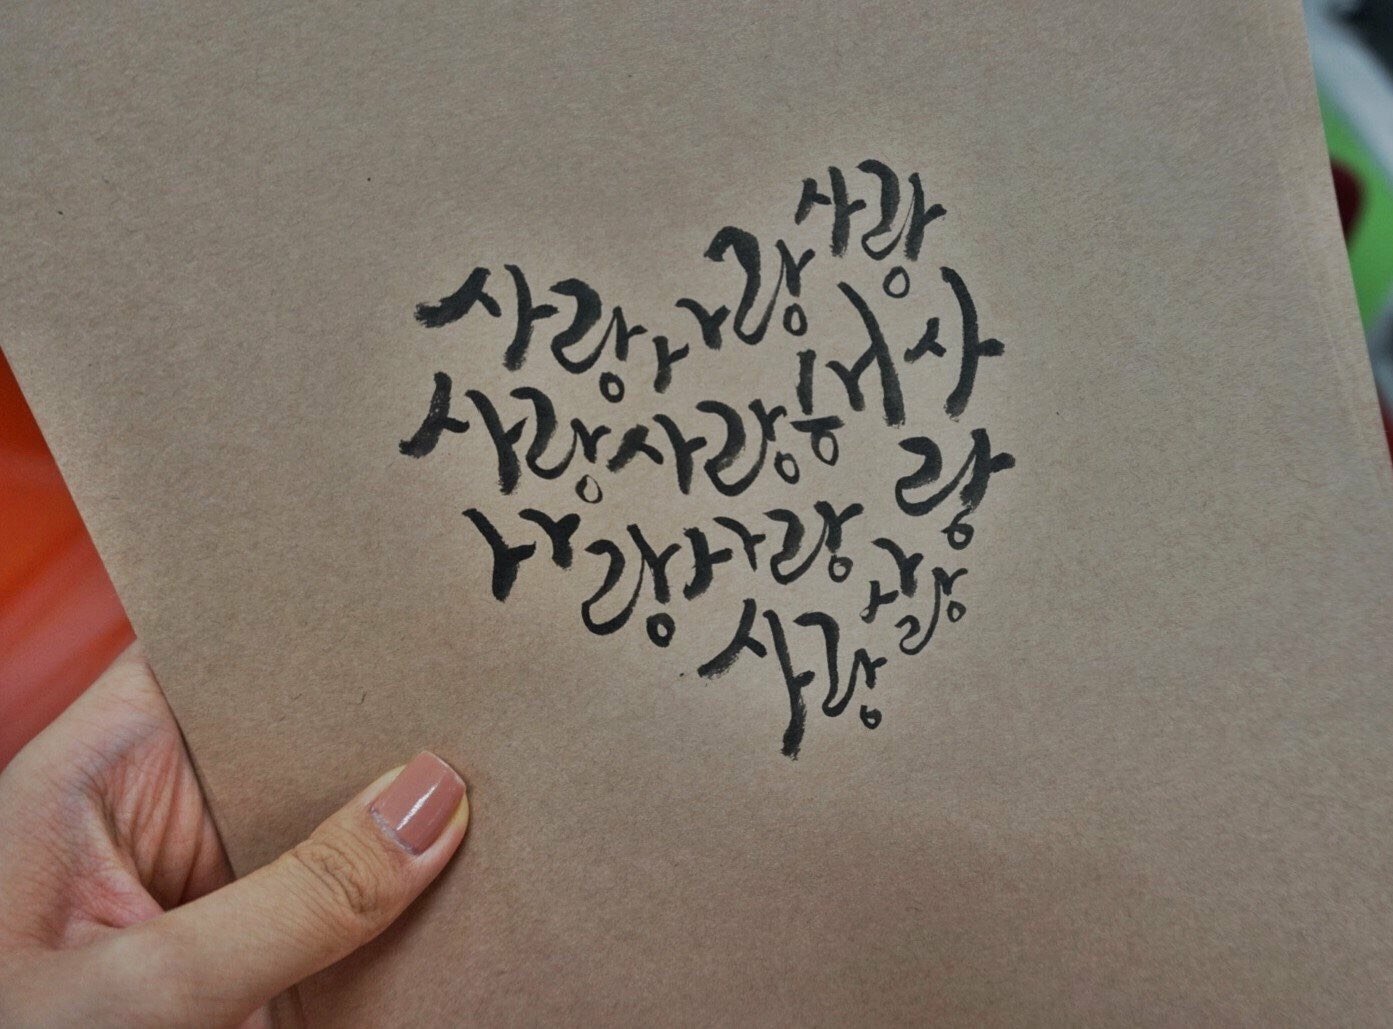 사랑
사랑사랑
사랑사랑
사
랑
사랑사랑
사랑
사랑